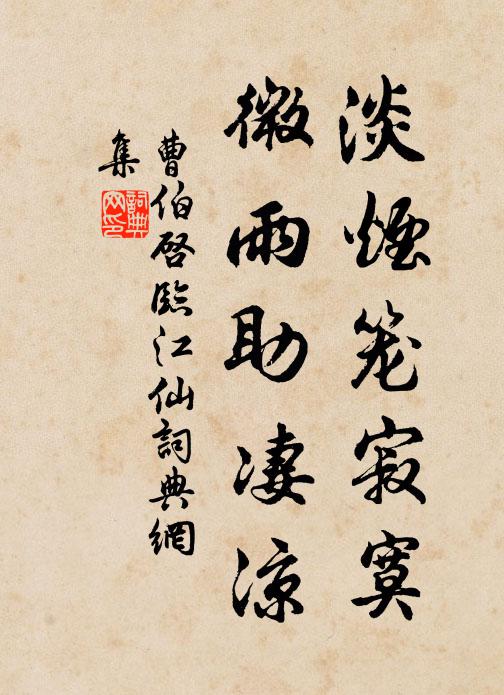 淡煙笼寂寞
微雨助凄涼
曹伯啓臨江仙詞典網
集
詞典
网印